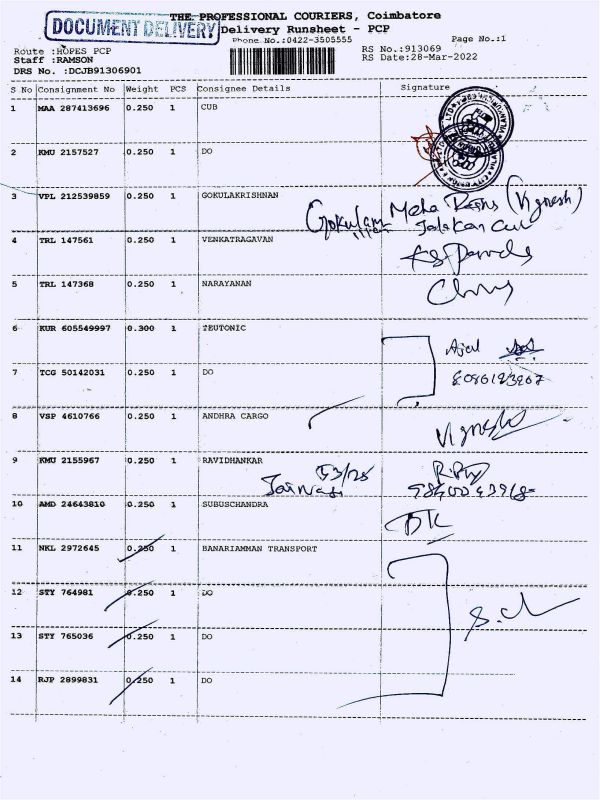 DOCUMENT DELIVERY
THE PROFESSIONAL COURIERS, Coimbatore
Delivery Runsheet - PCP
Phone No.:0422-3505555
Page No.:1
Route :HOPES PCP
Staff :RAMSON
DRS No. :DCJB91306901
RS No.:913069
RS Date:28-Mar-2022
S No Consignment No Weight PCS Consignee Details Signature
1 MAA 287413696 0.250 1 CUB
2 KMU 2157527 0.250 1 DO
3 VPL 212539859 0.250 1 GOKULAKRISHNAN
Gokulam (Vignesh)
4 TRL 147561 0.250 1 VENKATRAGAVAN
5 TRL 147368 0.250 1 NARAYANAN
6 KUR 605549997 0.300 1 TEUTONIC
7 TCG 50142031 0.250 1 DO
8 VSP 4610766 0.250 1 ANDHRA CARGO
Vignesh
9 KMU 2155967 0.250 1 RAVIDHANKAR
10 AMD 24643810 0.250 1 SUBUSCHANDRA
11 NKL 2972645 0.250 1 BANARIAMMAN TRANSPORT
12 STY 764981 0.250 1 DO
13 STY 765036 0.250 1 DO
14 RJP 2899831 0.250 1 DO